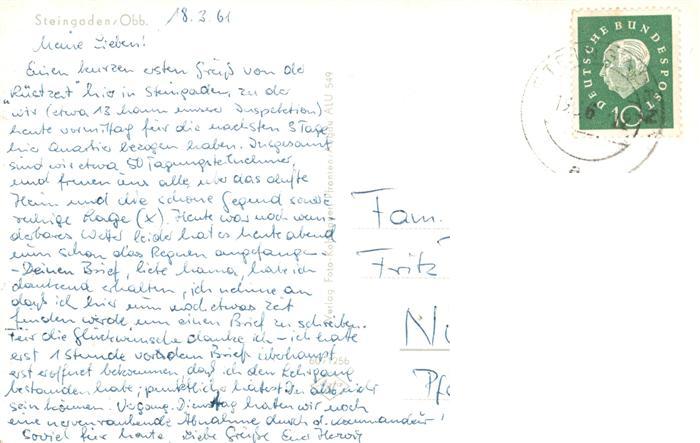 Steingaden/Obb.
18.3.61
Meine Lieben!
Einen kurzen ersten Gruß von der
"Rüstzeit" hier in Steingaden, zu der
wir (etwa 13 Mann unserer Inspektion)
heute vormittag für die nächsten 5 Tage
hier Quartier bezogen haben. Insgesamt
sind wir etwa 50 Tagungsteilnehmer,
und freuen uns alle über das
Heim und die schöne Gegend sowie
ruhige Lage (X). Heute war noch wun-
derbares Wetter leider hat es heute abend
nun schon das Regnen angefangen.
- Deinen Brief, liebe Mama, habe ich
dankend erhalten, ich nehme an
daß ich hier nun noch etwas Zeit
finden werde, um einen Brief zu schreiben.
Für die Glückwünsche danke ich - ich hatte
erst 1 Stunde vor dem Brief überhaupt
erst eröffnet bekommen, daß ich den Lehrgang
bestanden habe; pünktlicher hättest Du also nicht
sein können. Vergang. Dienstag hatten wir noch
eine nervenraubende Abnahme durch d. Kommandeur
Soviel für heute, Liebe Grüße Euer
Verlag Foto
ALU 549
Fam.
Fritz
DEUTSCHE BUNDESPOST
10